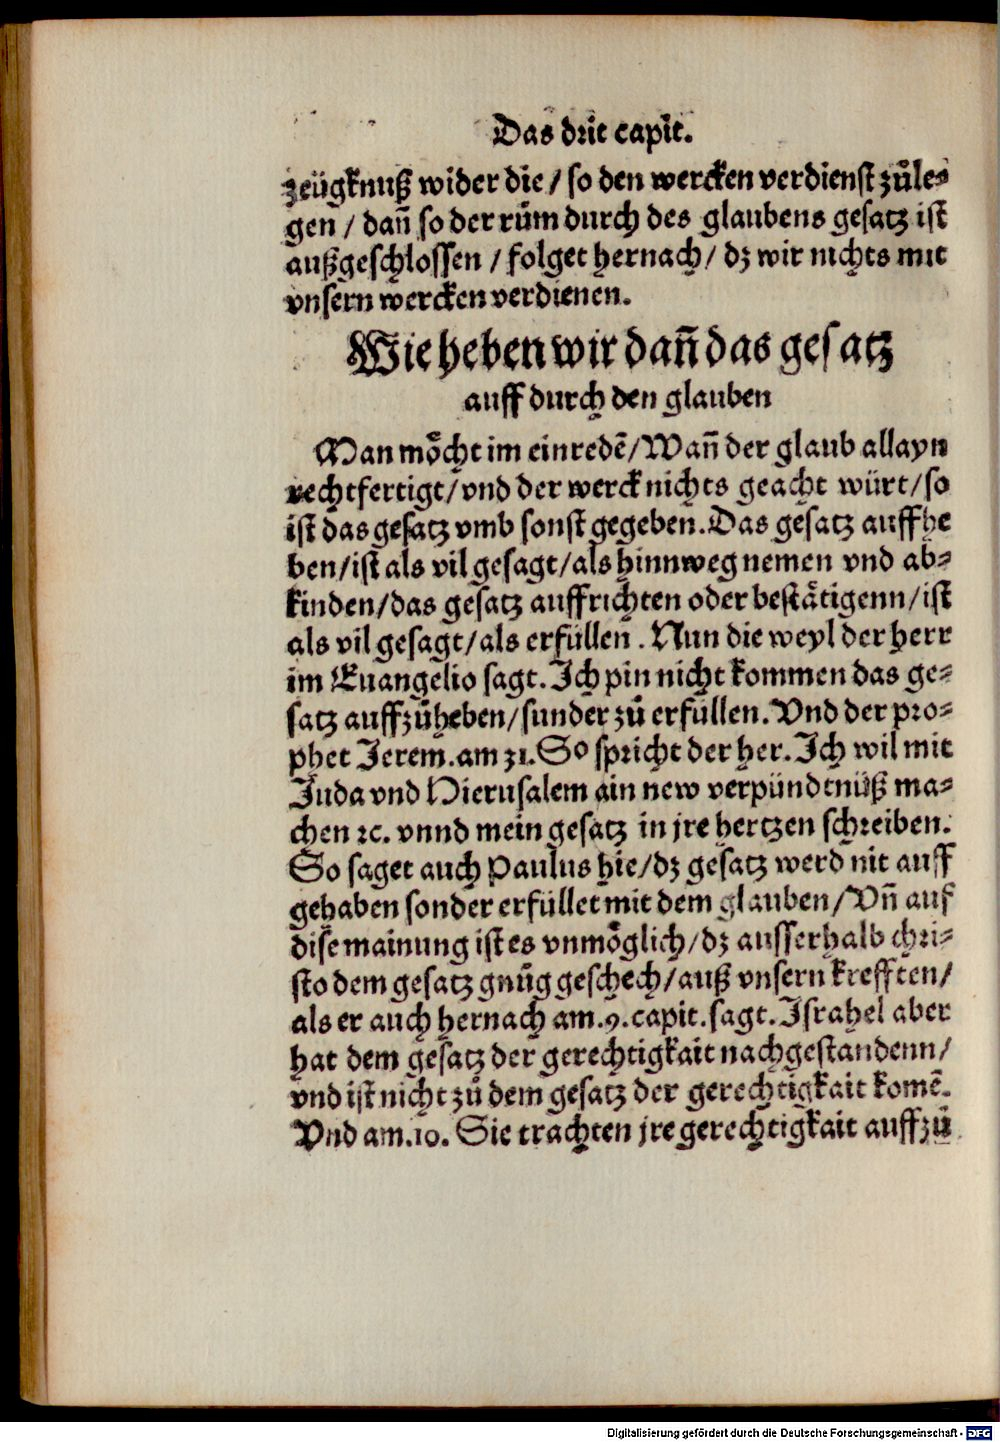 Das drit capit.
zeügknuß wider die / so den wercken verdienst zůle⸗
gen / dañ so der rům durch des glaubens gesatz ist
außgeschlossen / folget hernach / dz wir nichts mit
vnsern wercken verdienen.
Wie heben wir dañ das gesatz
auff durch den glauben
Man mo̊cht im einredē / Wañ der glaub allayn
rechtfertigt / vnd der werck nichts geacht würt / so
ist das gesatz vmb sonst gegeben. Das gesatz auffhe
ben / ist als vil gesagt / als hinnweg nemen vnd ab⸗
kinden / das gesatz auffrichten oder bestätigenn / ist
als vil gesagt / als erfüllen. Nun die weyl der herr
im Euangelio sagt. Ich pin nicht kommen das ge⸗
satz auffzůheben / sunder zů erfüllen. Vnd der pro⸗
phet Jerem. am 31. So spricht der her. Ich wil mit
Juda vnd Hierusalem ain new verpündtnüß ma⸗
chen ꝛc. vnnd mein gesatz in jre hertzen schreiben.
So saget auch Paulus hie / dz gesatz werd nit auff
gehaben sonder erfüllet mit dem glauben / Vñ auf
dise mainung ist es vnmöglich / dz ausserhalb chri⸗
sto dem gesatz gnůg geschech / auß vnsern krefften /
als er auch hernach am .9. capit. sagt. Israhel aber
hat dem gesatz der gerechtigkait nachgestandenn /
vnd ist nicht zů dem gesatz der gerechtigkait komē.
Vnd am .10. Sie trachten jre gerechtigkait auffzů
Digitalisierung gefördert durch die Deutsche Forschungsgemeinschaft - DFG